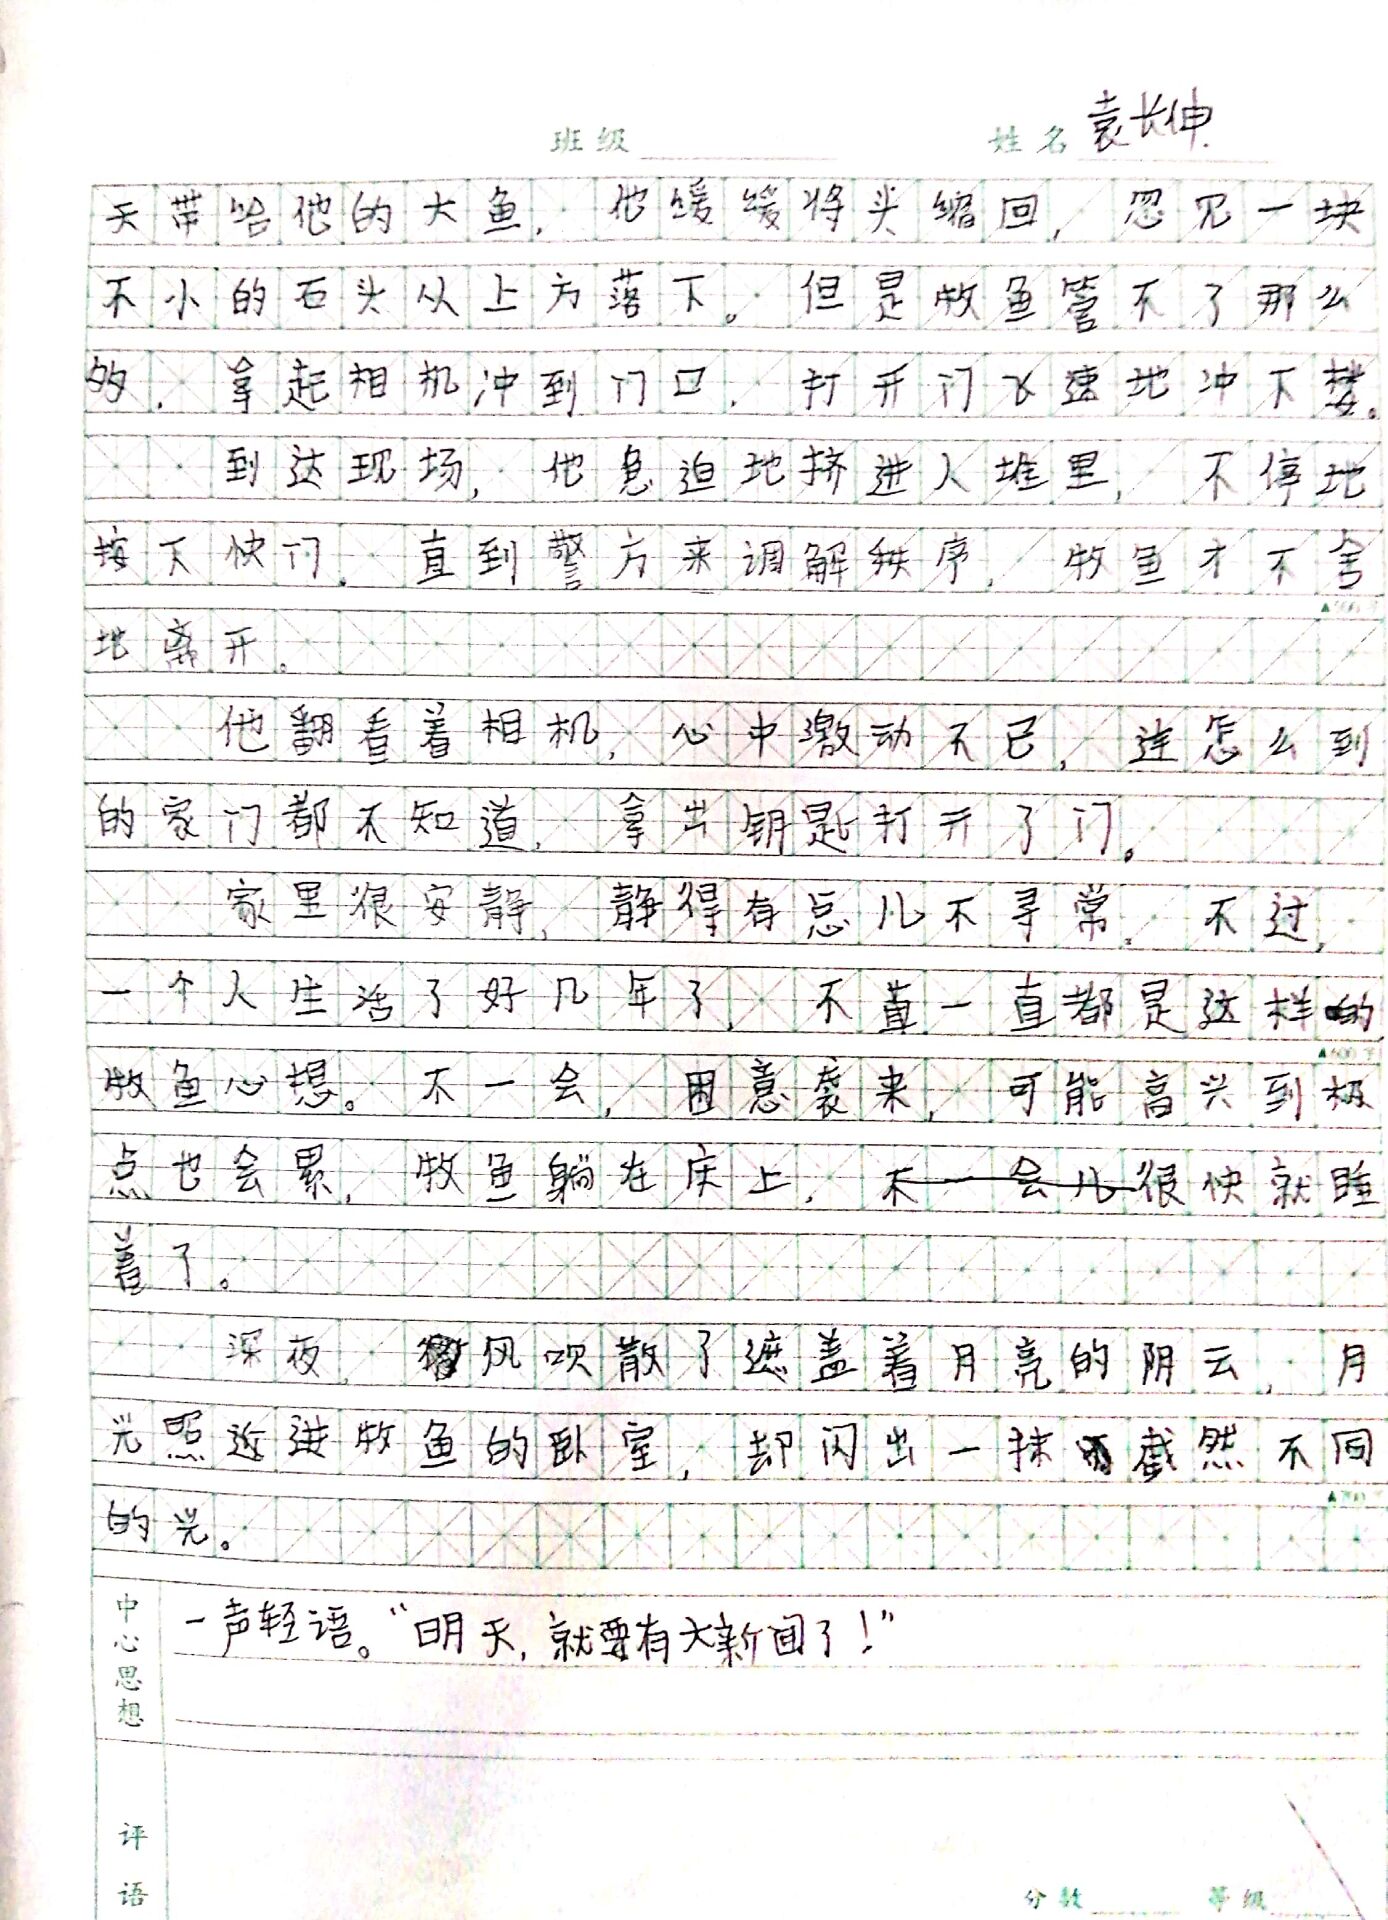 班级 姓名 袁长伸
天带给他的大鱼，他缓缓将头缩回，忽见一块
不小的石头从上方落下。但是牧鱼管不了那么
多，拿起相机冲到门口，打开门飞速地冲下楼。
到达现场，他急迫地挤进人堆里，不停地
按下快门。直到警方来调解秩序，牧鱼才不舍
地离开。
他翻看着相机，心中激动不已，连怎么到
的家门都不知道，拿出钥匙打开了门。
家里很安静，静得有点儿不寻常。不过，
一个人生活了好几年了，不直一直都是这样的
▲600字
牧鱼心想。不一会，困意袭来，可能高兴到极
点也会累，牧鱼躺在床上，不一会儿很快就睡
着了。
深夜，风吹散了遮盖着月亮的阴云，月
光照近进牧鱼的卧室，却闪出一抹截然不同
的光。
中心思想
一声轻语。“明天，就要有大新闻了！”
评语
分数 等级